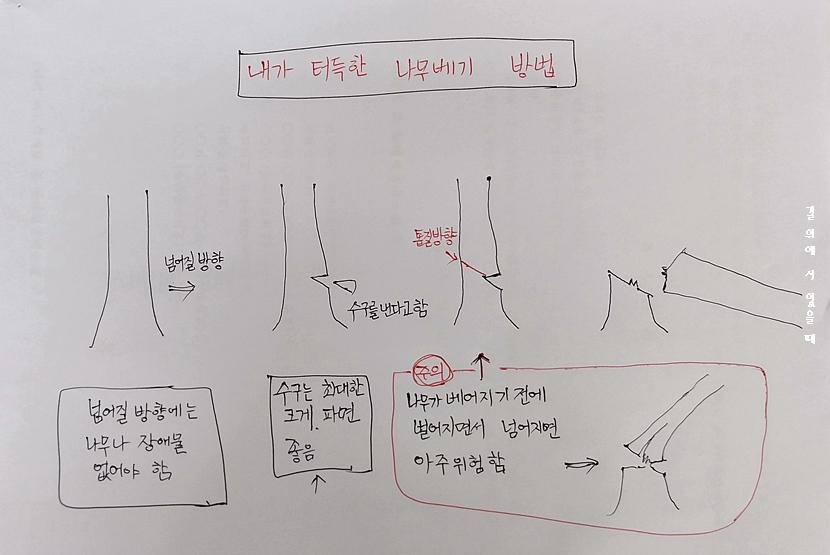 내가 터득한 나무베기 방법
넘어질 방향
수구를 낸다고 함
톱질방향
넘어질 방향에는
나무나 장애물
없어야 함
수구는 최대한
크게 파면
좋음
주의
나무가 베어지기 전에
벌어지면서 넘어지면
아주 위험함
길 위에 서 있을 때